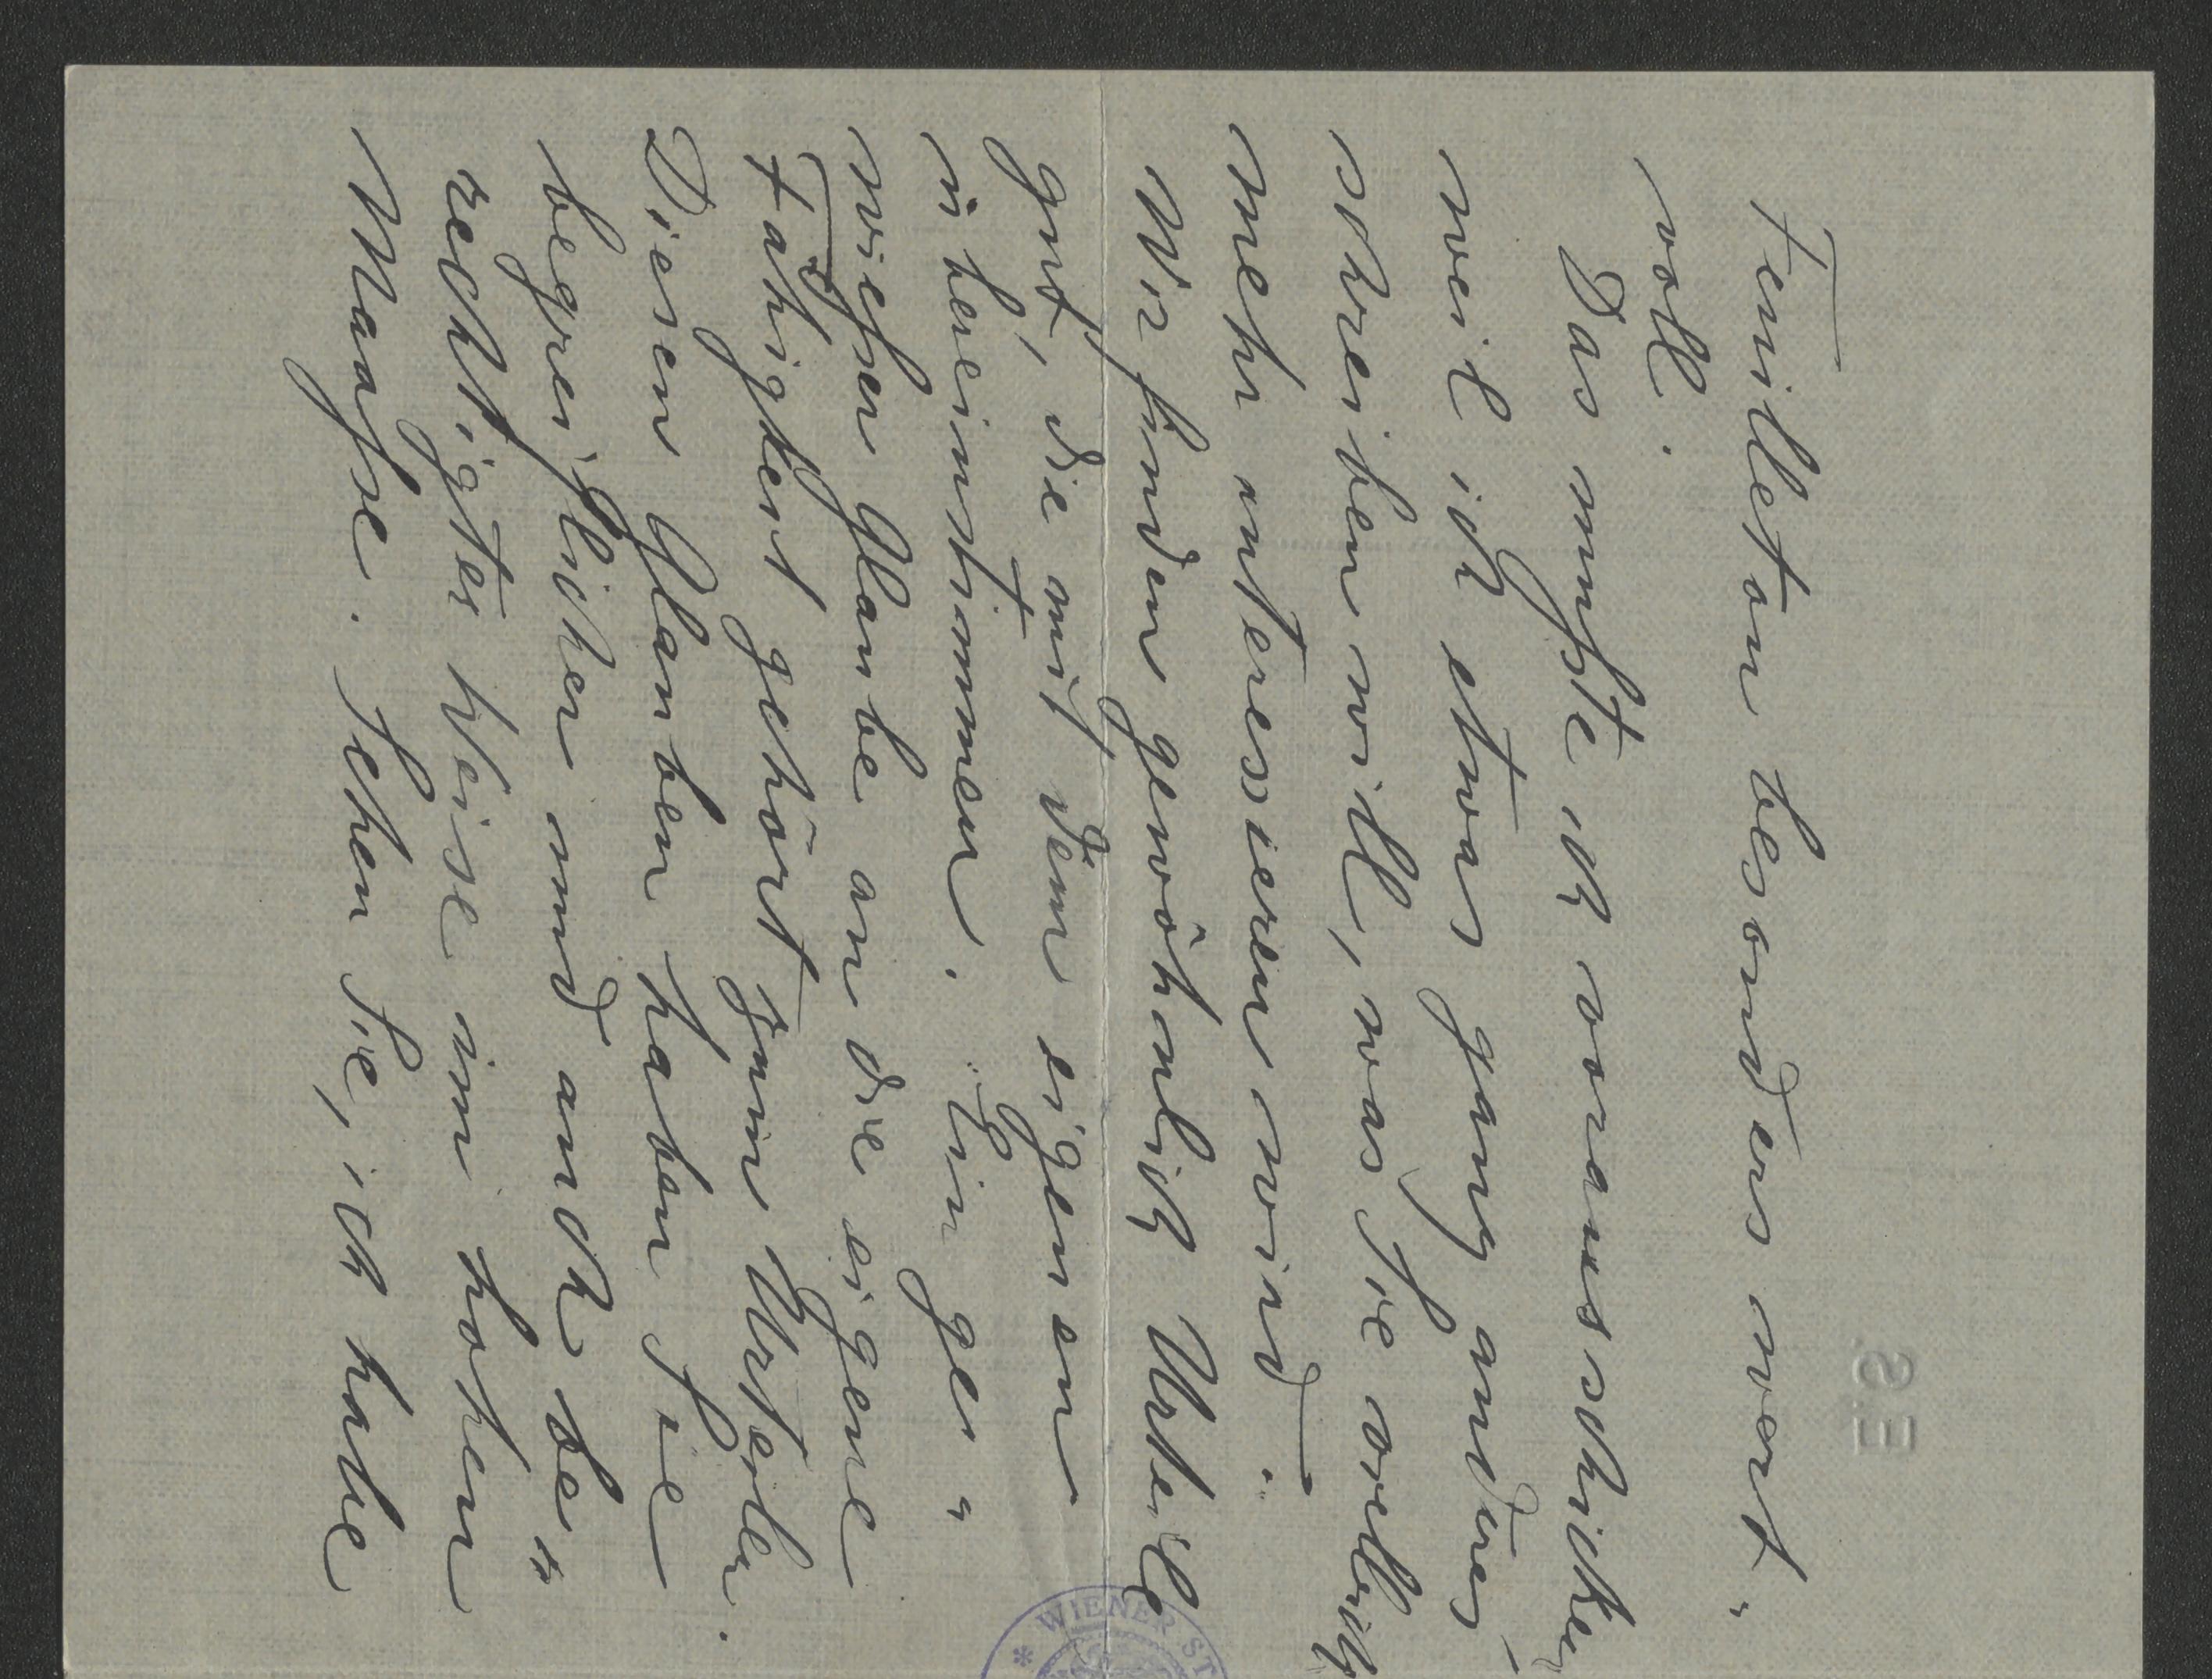 Feuilleton besonders wert-
voll.
Das mußte ich vorausschicken,
weil ich etwas ganz anderes
schreiben will, was Sie vielleicht
mehr interessieren wird.
Wir finden gewöhnlich Urteile
gut, die mit dem eigenen
übereinstimmen. Ein ge-
wisser Glaube an die eigene
Fähigkeit gehört zum Urteilen.
Diesen Glauben haben Sie
begreiflicher und auch be-
rechtigter Weise im hohen
Maaße. Sehen Sie, ich habe
E.S.
* WIENER ST